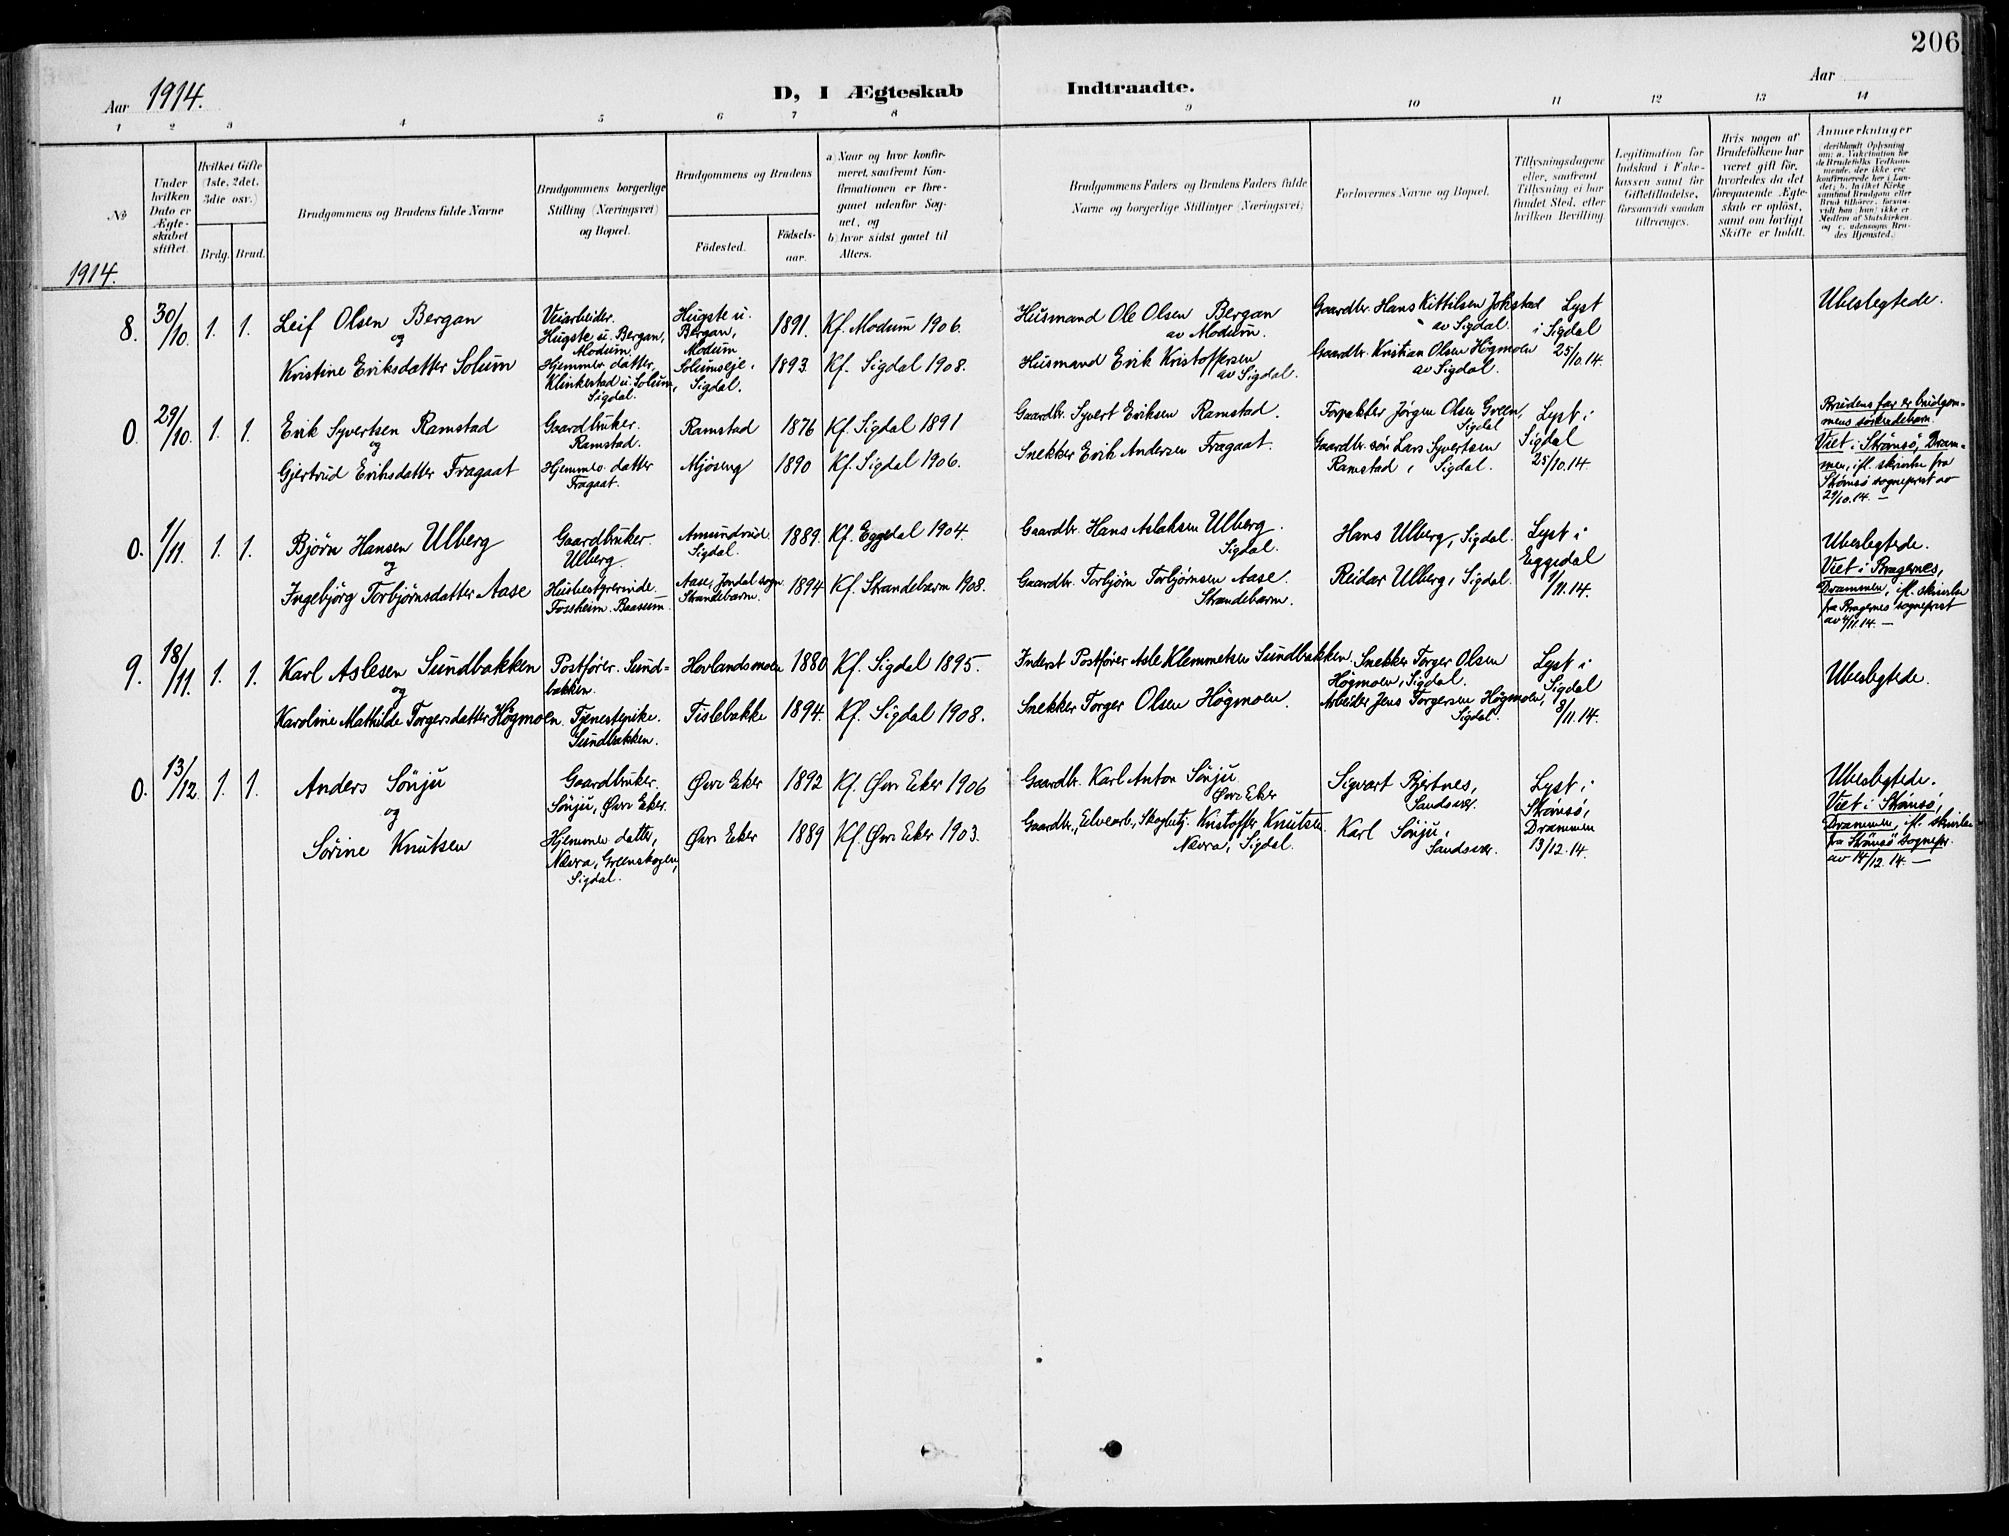 206
Aar 1914.
D, I Ægteskab Indtraadte.
Aar
1 2 3 4 5 6 7 8 9 10 11 12 13 14
No
Under hvilken Dato er Ægteskabet stiftet.
Hvilket Gifte (1ste, 2det, 3die osv.)
Brdg. Brud.
Brudgommens og Brudens fulde Navne
Brudgommens borgerlige Stilling (Næringsvei) og Bopæl.
Brudgommens og Brudens
Födested.
Födselsaar.
a) Naar og hvor konfirmeret, saafremt Konfirmationen er foregaaet udenfor Sognet, og
b) hvor sidst gaaet til Alters.
Brudgommens Faders og Brudens Faders fulde Navne og borgerlige Stillinger (Næringsvei)
Forlovernes Navne og Bopæl.
Tillysningsdagene eller, saafremt Tillysning ei har fundet Sted, efter hvilken Bevilling.
Legitimation for Indskud i Enkekassen samt for Giftetilladelse, forsaavidt saadan tiltrænges.
Hvis nogen af Brudefolkene har været gift för, hvorledes da det foregaaende Ægteskab er oplöst, samt om lovligt Skifte er holdt.
Anmærkninger (deriblandt Oplysning om: a. Vakcination for de Brudefolks Vedkommende, der ikke ere konfirmerede her i Landet; b. hvilket Kirkesamfund Brudgom eller Brud tilhörer, forsaavidt han (hun) ikke er Medlem af Statskirken, og c. udensogns Brudes Hjemsted.)
1914.
8. 30/10. 1. 1. Leif Olsen Bergan
og
Kristine Eriksdatter Solum
Veiarbeider. Hugste u. Bergan, Modum.
Hjemmev. datter, Klinkestad u. Solum, Sigdal.
Hugste u. Bergan, Modum
Solumseje, Sigdal.
1891. Kf. Modum 1906.
1893. Kf. Sigdal 1908.
Husmand Ole Olsen Bergan av Modum.
Husmand Erik Kristoffersen av Sigdal.
Gaardbr. Hans Kittilsen Jokstad av Sigdal.
Gaardbr. Kristian Olsen Högmoen av Sigdal.
Lyst i Sigdal 25/10.14.
Ubeslegtede.
0. 29/10. 1. 1. Erik Syvertsen Ramstad
og
Gjertrud Eriksdatter Fragaat
Gaardbruker. Ramstad.
Hjemmev. datter Fragaat.
Ramstad 1876 Kf. Sigdal 1891
Mjöseng 1890 Kf. Sigdal 1906.
Gaardbr. Syvert Eriksen Ramstad.
Snekker Erik Andersen Fragaat.
Forpakter Jörgen Olsen Green, Sigdal
Gaardbr. sön Lars Syvertsen Ramstad, Sigdal.
Lyst i Sigdal 25/10.14.
Brudens far er brudgommens söskendebarn.
Viet i Strömsö, Drammen, ifl. skrivelse fra Strömsö sogneprest av 29/10.14. —
0. 1/11. 1. 1. Bjørn Hansen Ulberg
og
Ingebjörg Torbjørnsdatter Aase
Gaardbruker. Ulberg.
Husbestyrerinde. Fossheim. Baasum.
Amundrud. Sigdal.
Aase, Jondal sogn Strandebarm.
1889. Kf. Eggedal 1904.
1894 Kf. Strandebarm 1908.
Gaardbr. Hans Aslaksen Ulberg. Sigdal.
Gaardbr. Torbjörn Torbjörnsen Aase. Strandebarm.
Hans Ulberg, Sigdal.
Reidar Ulberg, Sigdal.
Lyst i Eggedal 1/11.14.
Ubeslegtede.
Viet i Bragernes, Drammen, ifl. skrivelse fra Bragernes sogneprest av 4/11.14. —
9. 18/11. 1. 1. Karl Aslesen Sundbakken
og
Karoline Mathilde Torgersdatter Högmoen
Postfører. Sundbakken.
Tjenestepike. Sundbakken.
Hovlandsmoen 1880 Kf. Sigdal 1895.
Tislebakke 1894. Kf. Sigdal 1908.
Inderst Postfører Asle Klemmetsen Sundbakken.
Snekker Torger Olsen Högmoen.
Snekker Torger Olsen Högmoen, Sigdal.
Arbeider Jens Torgersen Högmoen, Sigdal.
Lyst i Sigdal 8/11.14.
Ubeslegtede.
0. 13/12. 1. 1. Anders Sönju
og
Sörine Knutsen
Gaardbruker. Sönju, Øvre Eker.
Hjemmev. datter, Nævra, Greenskogen, Sigdal.
Øvre Eker 1892 Kf. Øvre Eker 1906
Øvre Eker 1889 Kf. Øvre Eker 1903.
Gaardbr. Karl Anton Sönju Øvre Eker
Gaardbr., Elvearb., Skogbetj. Kristoffer Knutsen Nævra, Sigdal.
Sigvart Bjertnes, Sandsvær.
Karl Sönju, Sandsvær.
Lyst i Strömsö, Drammen 13/12.14.
Ubeslegtede.
Viet i Strömsö, Drammen, ifl. skrivelse fra Strömsö sognepr. av 14/12.14. —